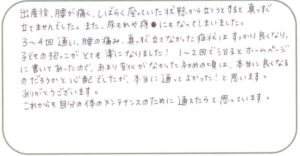 出産後、腰が痛く、しばらく座っていた状態から立とうとすると真っすぐ
立てませんでした。また、尿もれや痔にもなってしまいました。
3〜4回通い、腰の痛み、真っすぐ立てなかった症状はすっかり良くなり、
子どもの抱っこがとても楽になりました! 1〜2回で治るとホームページ
に書いてあったので、あまり変化がなかった初めの頃は、本当に良くなる
のだろうかと心配でしたが、本当に通ってよかった!と思います。
ありがとうございます。
これからも自分の体のメンテナンスのために通えたらと思っています。